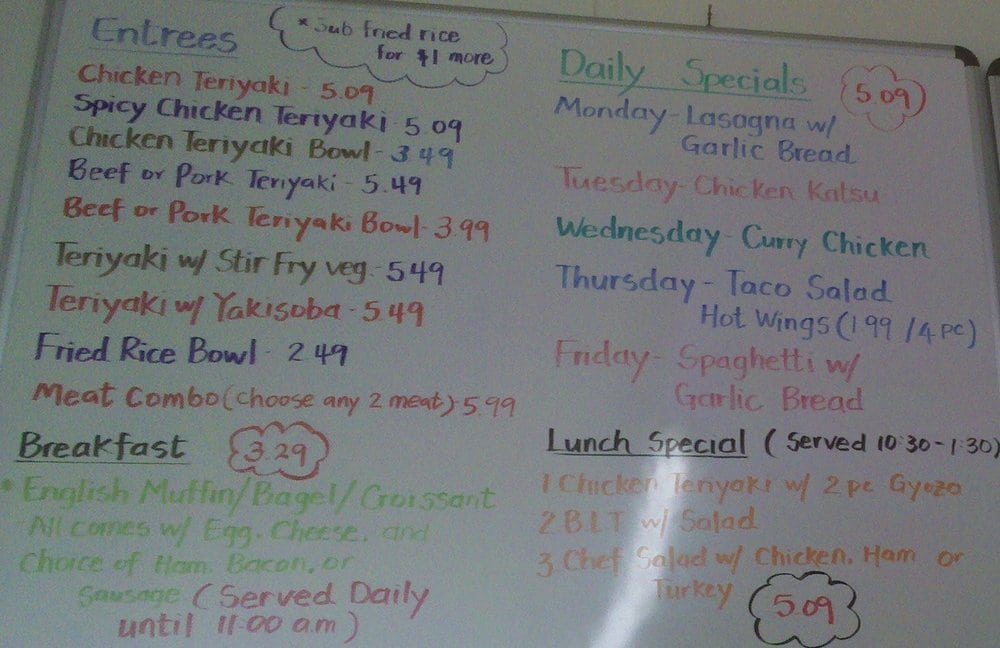 Entrees
* Sub fried rice
for $1 more
Chicken Teriyaki - 5.09
Spicy Chicken Teriyaki - 5 09
Chicken Teriyaki Bowl - 3 49
Beef or Pork Teriyaki - 5.49
Beef or Pork Teriyaki Bowl - 3.99
Teriyaki w/ Stir Fry veg. - 5 49
Teriyaki w/ Yakisoba - 5.49
Fried Rice Bowl - 2 49
Meat Combo (choose any 2 meat) - 5.99
Breakfast 3.29
* English Muffin/Bagel/Croissant
All comes w/ Egg, Cheese, and
Choice of Ham, Bacon, or
Sausage (Served Daily
until 11:00 a.m)
Daily Specials 5.09
Monday - Lasagna w/
Garlic Bread
Tuesday - Chicken Katsu
Wednesday - Curry Chicken
Thursday - Taco Salad
Hot Wings (1 99 / 4 pc)
Friday - Spaghetti w/
Garlic Bread
Lunch Special (Served 10:30 - 1:30)
1 Chicken Teriyaki w/ 2 pc Gyoza
2 B.L.T w/ Salad
3 Chef Salad w/ Chicken, Ham or
Turkey
5.09